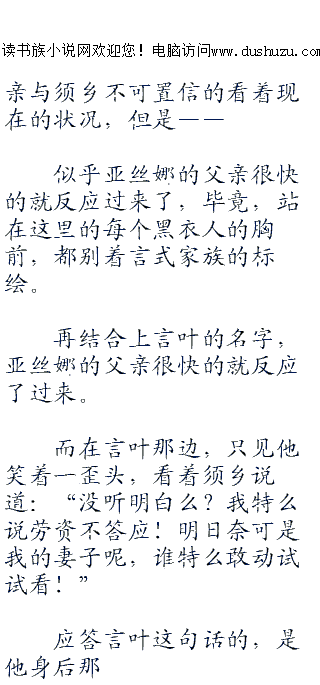 读书族小说网欢迎您！电脑访问www.dushuzu.com
亲与须乡不可置信的看着现
在的状况，但是——
似乎亚丝娜的父亲很快
的就反应过来了，毕竟，站
在这里的每个黑衣人的胸
前，都别着言式家族的标
绘。
再结合上言叶的名字，
亚丝娜的父亲很快的就反应
了过来。
而在言叶那边，只见他
笑着一歪头，看着须乡说
道：“没听明白么？我特么
说劳资不答应！明日奈可是
我的妻子呢，谁特么敢动试
试看！”
应答言叶这句话的，是
他身后那